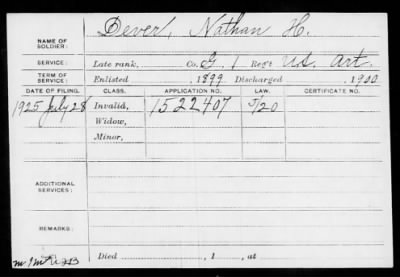 NAME OF SOLDIER: Dever, Nathan H.
SERVICE: Late rank, Co. G, 1 Reg't US. Art.
TERM OF SERVICE: Enlisted , 1899 Discharged , 1900
DATE OF FILING. CLASS. APPLICATION NO. LAW. CERTIFICATE NO.
1925 July 28 Invalid, 1522407 5/20
Widow,
Minor,
ADDITIONAL SERVICES:
REMARKS:
Died , 1 , at